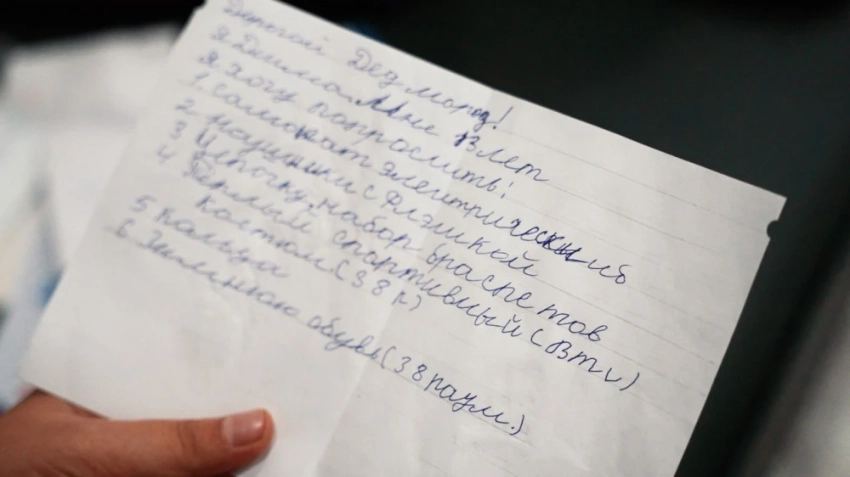 Дорогой Дед мороз!
Я Дима. Мне 13 лет
Я хочу попросить:
1. самокат электрический
2. наушники с флэшкой
3 Цепочку, набор браслетов
4 Тёплый спортивный (
костюм (38 р)
5 Кольцо
6 Зимнюю обувь (38 разм.)